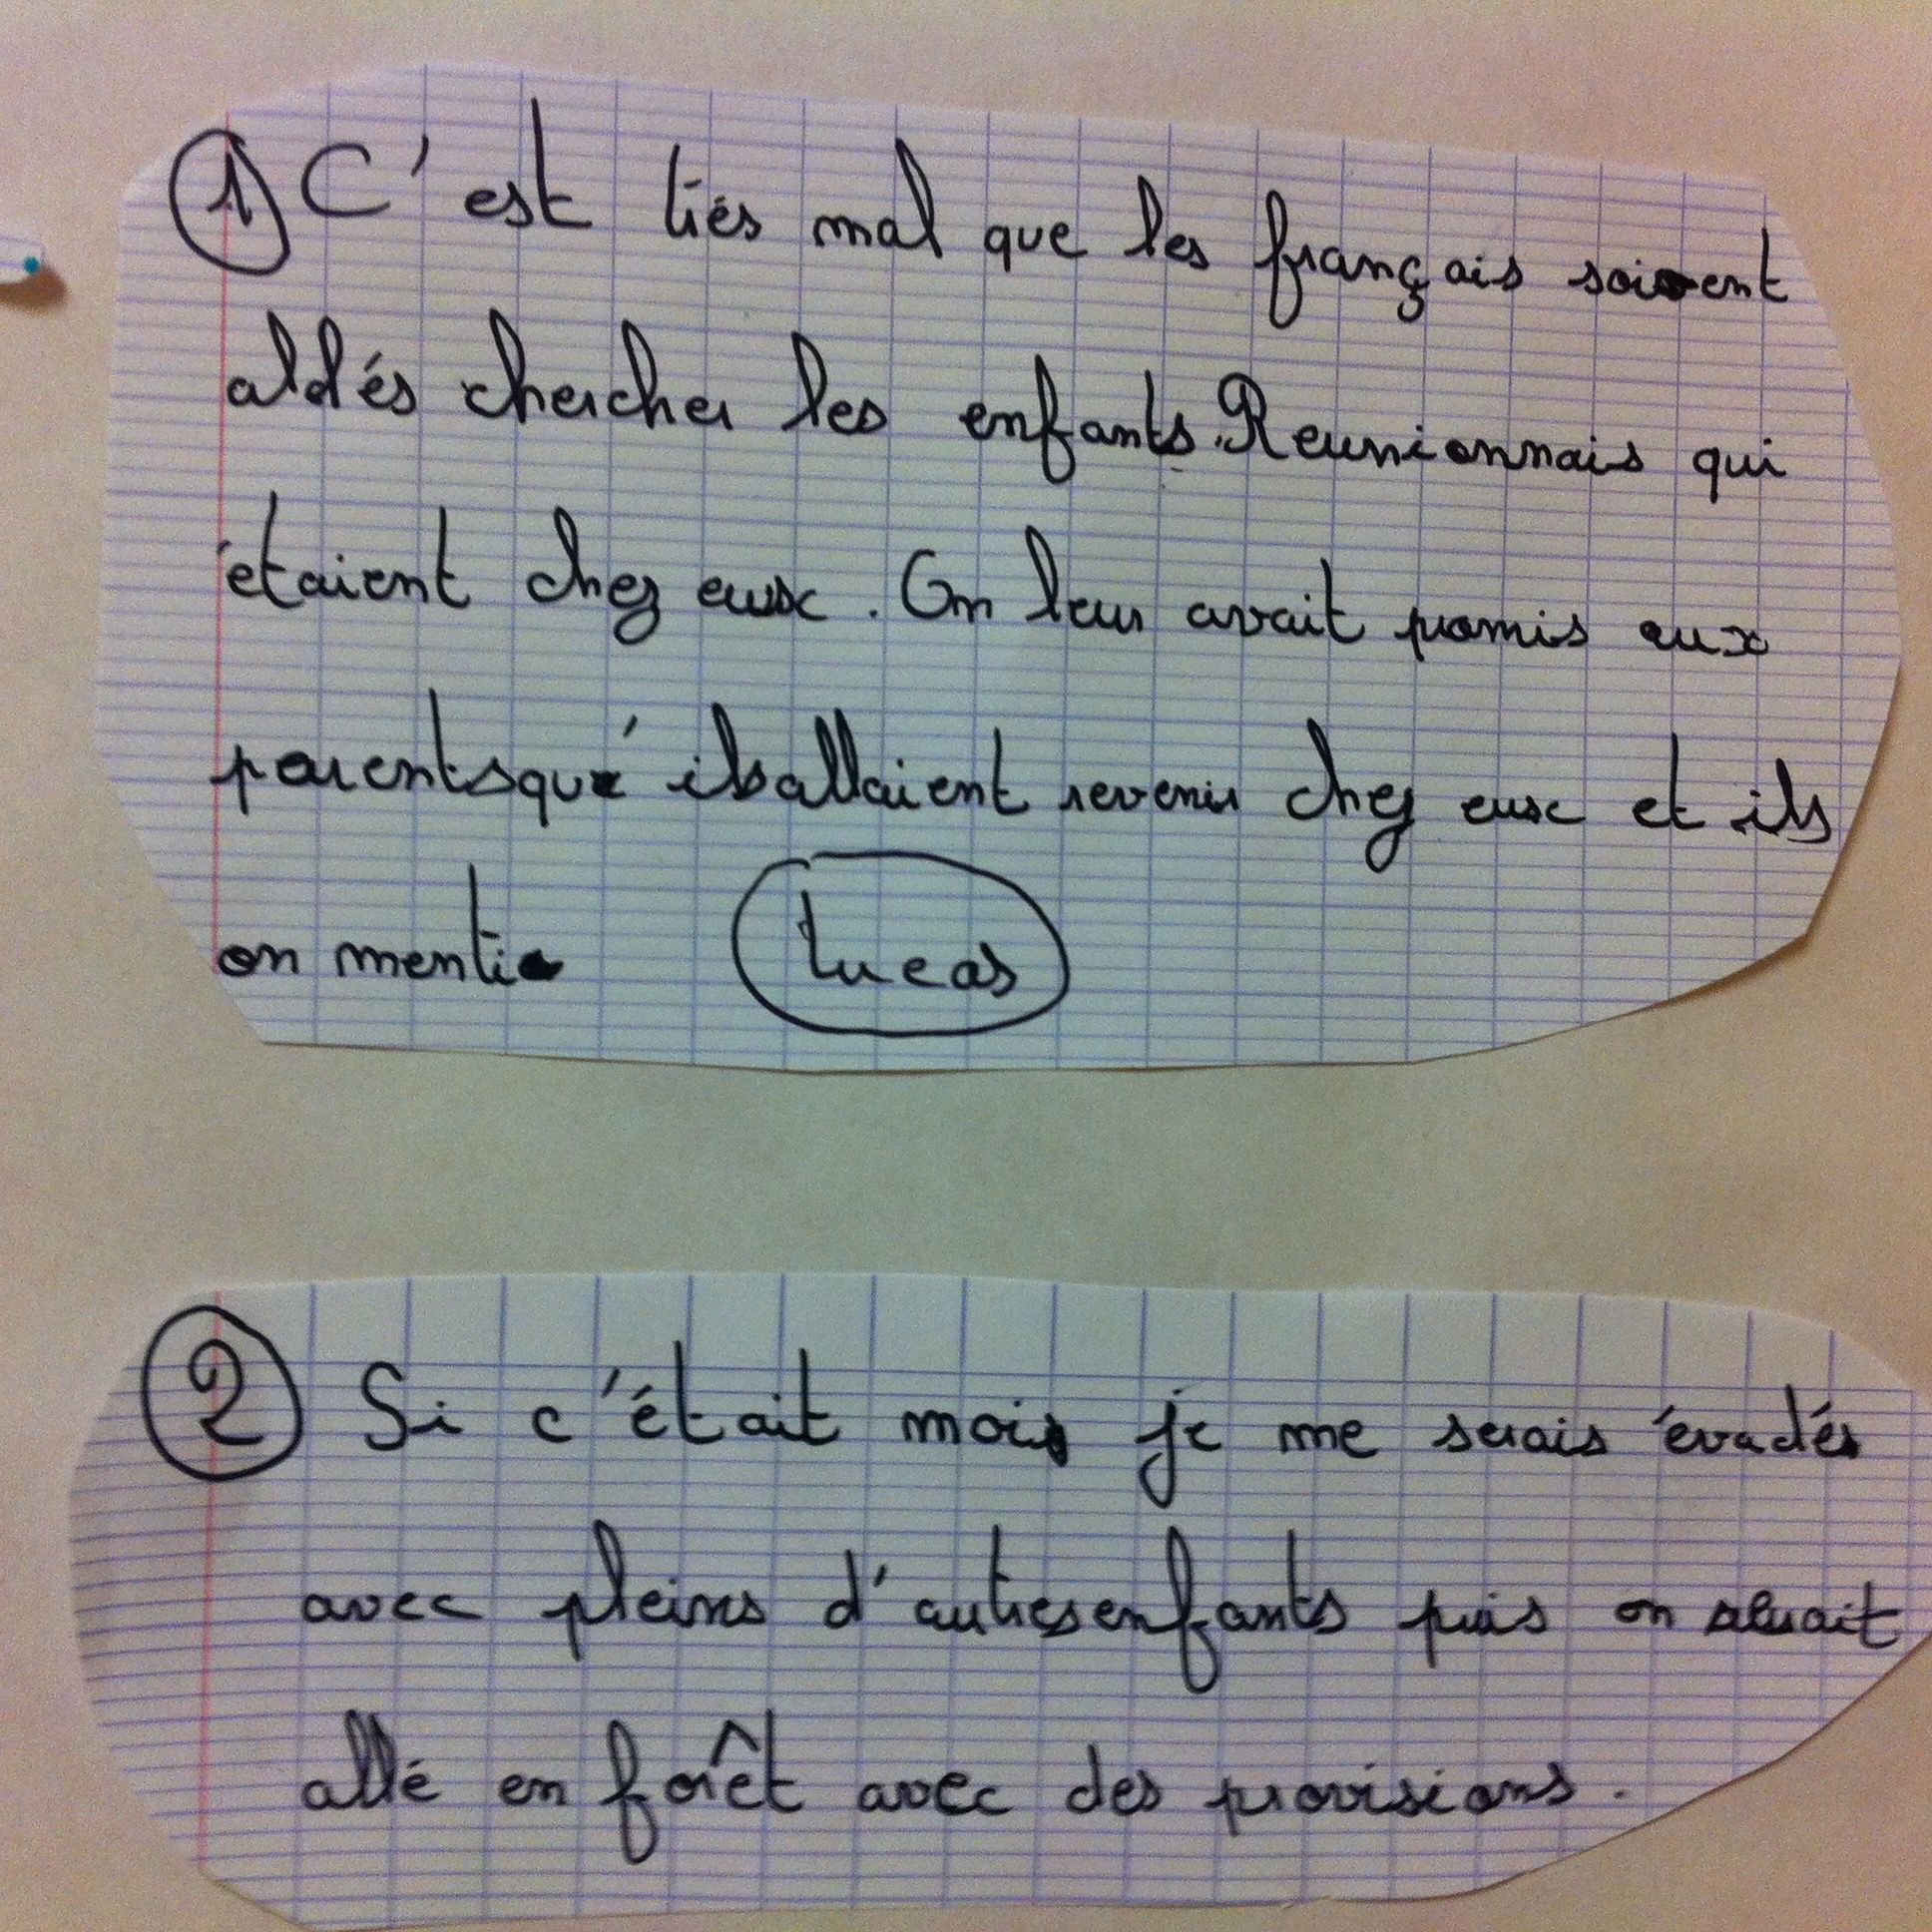 ① C'est trés mal que les français soient
allés chercher les enfants Reunionnais qui
étaient chez eux. On leur avait promis aux
parents qu' ils allaient revenir chez eux et ils
on menti
Lucas
② Si c'était mois je me serais évadés
avec pleins d'autres enfants puis on serait
allé en forêt avec des provisions.